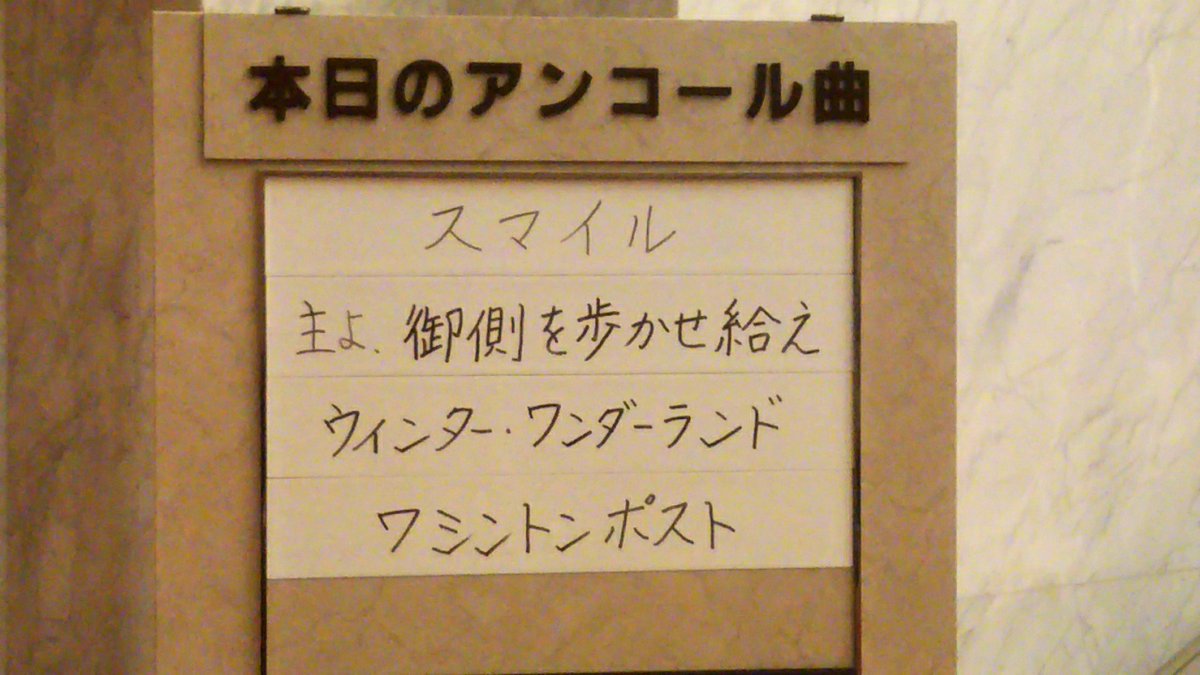 本日のアンコール曲
スマイル
主よ、御側を歩かせ給え
ウィンター・ワンダーランド
ワシントンポスト